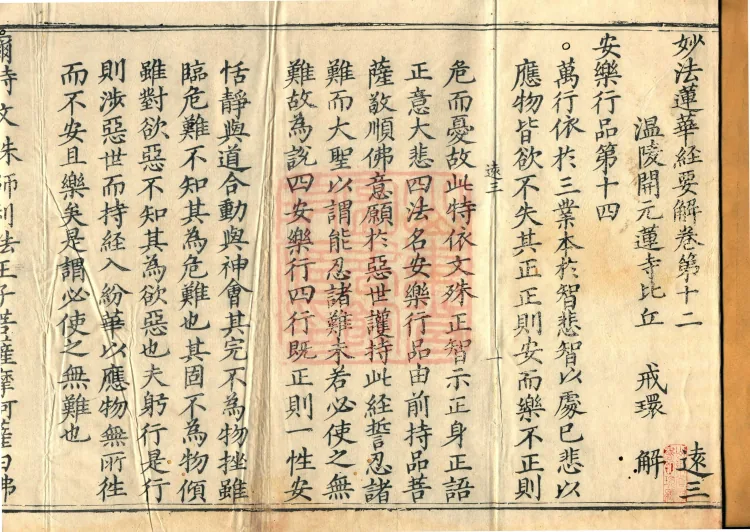 妙法蓮華經要解卷第十二　遠三
溫陵開元蓮寺比丘　戒環　解
安樂行品第十四
。萬行依於三業本於智悲智以處已悲以
應物皆欲不失其正正則安而樂不正則
遠三　一
危而憂故此特依文殊正智示正身正語
正意大悲四法名安樂行品由前持品菩
薩敬順佛意願於惡世護持此經誓忍諸
難而大聖以謂能忍諸難未若必使之無
難故為說四安樂行四行既正則一性安
恬靜與道合動與神會其完不為物挫雖
臨危難不知其為危難也其固不為物傾
雖對欲惡不知其為欲惡也夫躬行是行
則涉惡世而持經入紛華以應物無所徃
而不安且樂矣是謂必使之無難也
爾時文殊師利法王子菩薩摩訶薩白佛